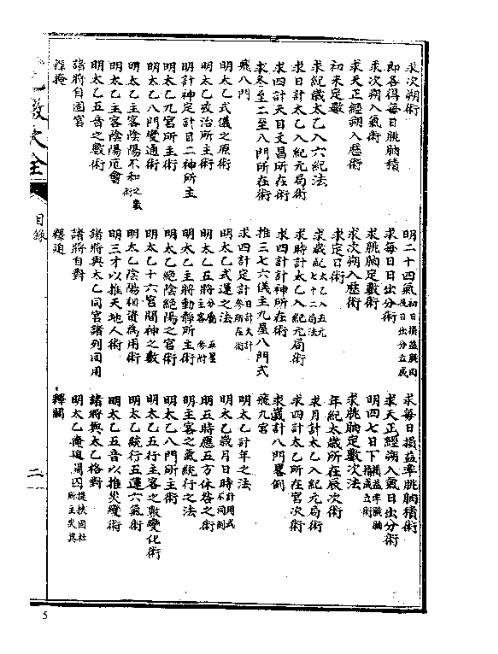 求次朔術
明二十四氣
求每日損益率朓朒積術
即各得每日朓朒積
求每日日出分術
求天正經朔入氣日出分術
求次朔入氣術
求朓朒定數術
明四七日下損益率朓朒
求天正經朔入曆術
求次朔入曆術
求朓朒定數次法
初末定數
求定日術
年紀太歲所在辰次術
求紀歲太乙入六紀法
求歲紀太乙入五元七十二局法
求月計太乙入紀元局術
求日計太乙入紀元局術
求時計太乙入紀元局術
求四計太乙所在宮次術
求四計天目文昌所在術
求四計計神所在術
求歲計八門畧例
求冬至二至八門所在術
推三七六儀主九星八門式
飛九宮
飛八門
求四計定計
明太乙計年之法
明太乙式儀之原術
明太乙式運之法
明太乙歲月日時計用式不同例
明太乙攻治所主術
明太乙五將主客
明五時應五方休咎之術
明計神定計目二神所主
明太乙主將動靜所主術
明主客之氣統行之法
明太乙九宮所主術
明太乙絕陰絕陽之宮術
明太乙八門所主術
明太乙八門變通術
明太乙十六宮間神之數
明太乙五行主客之數變化術
明太乙主客陰陽不和之數術
明太乙陰陽相資為用術
明太乙統行五運六氣術
明太乙主客陰陽厄會
明三才以推天地人術
明太乙五音以推災變術
明太乙五音之數術
諸將與太乙同宮諸列同用
諸將與太乙格對
諸將自囚宮
諸將自對
明太乙
釋掩
釋迫
釋關
目錄
二
5